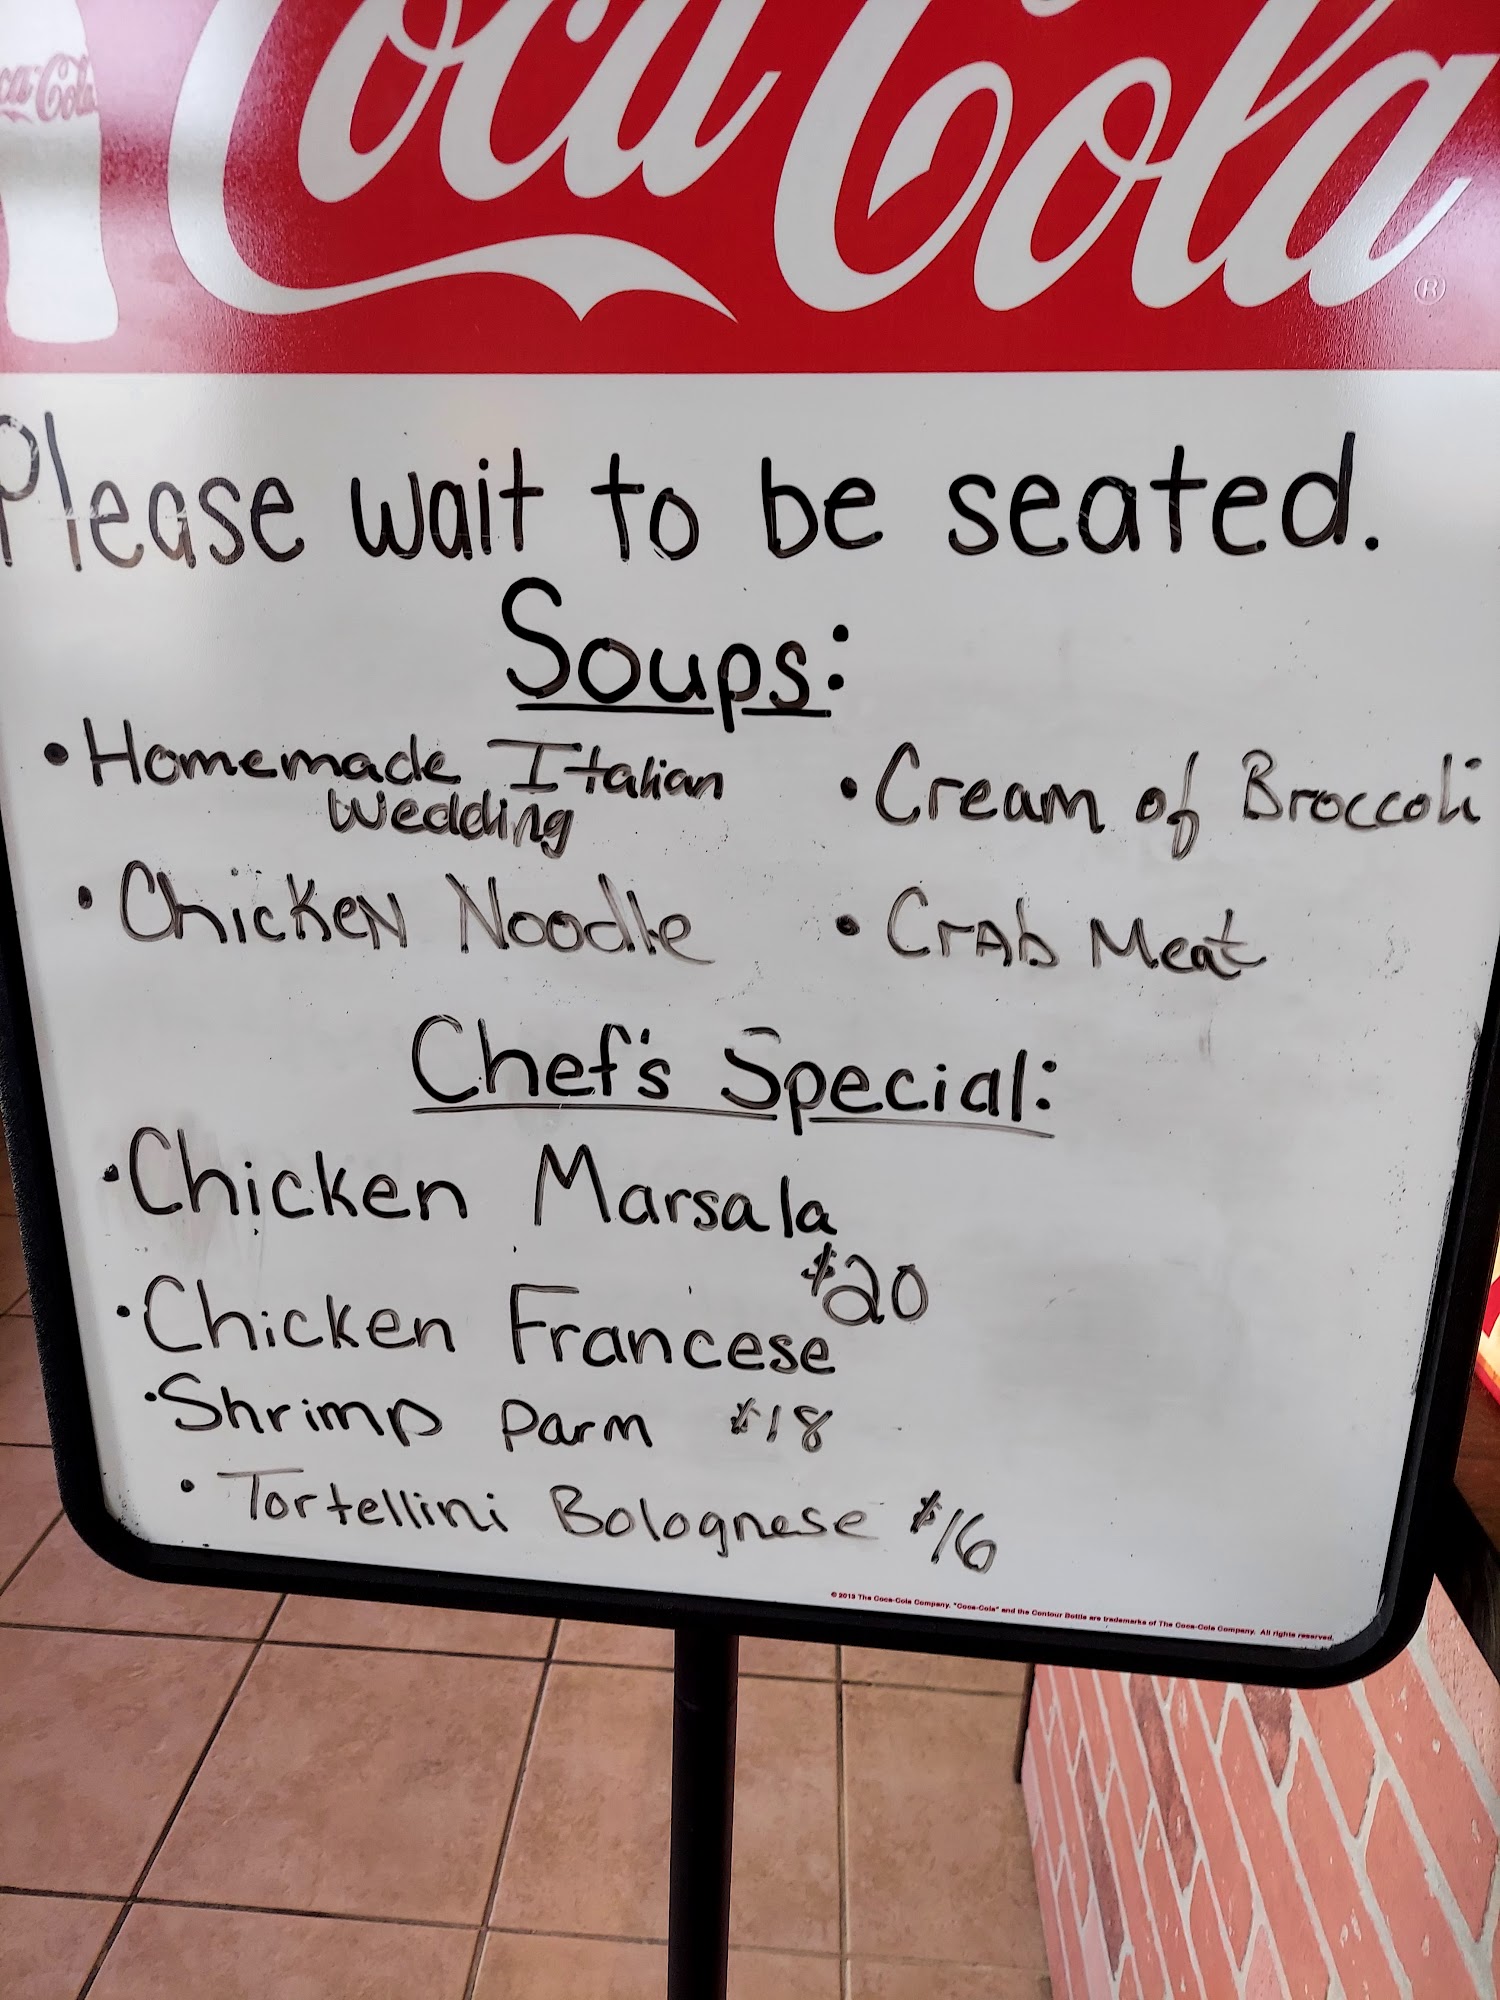 Coca-Cola
Coca-Cola
®
Please wait to be seated.
Soups:
• Homemade Italian
Wedding
• Cream of Broccoli
• Chicken Noodle
• Crab Meat
Chef's Special:
• Chicken Marsala
$20
• Chicken Francese
• Shrimp Parm $18
• Tortellini Bolognese $16
© 2013 The Coca-Cola Company. "Coca-Cola" and the Contour Bottle are trademarks of The Coca-Cola Company. All rights reserved.